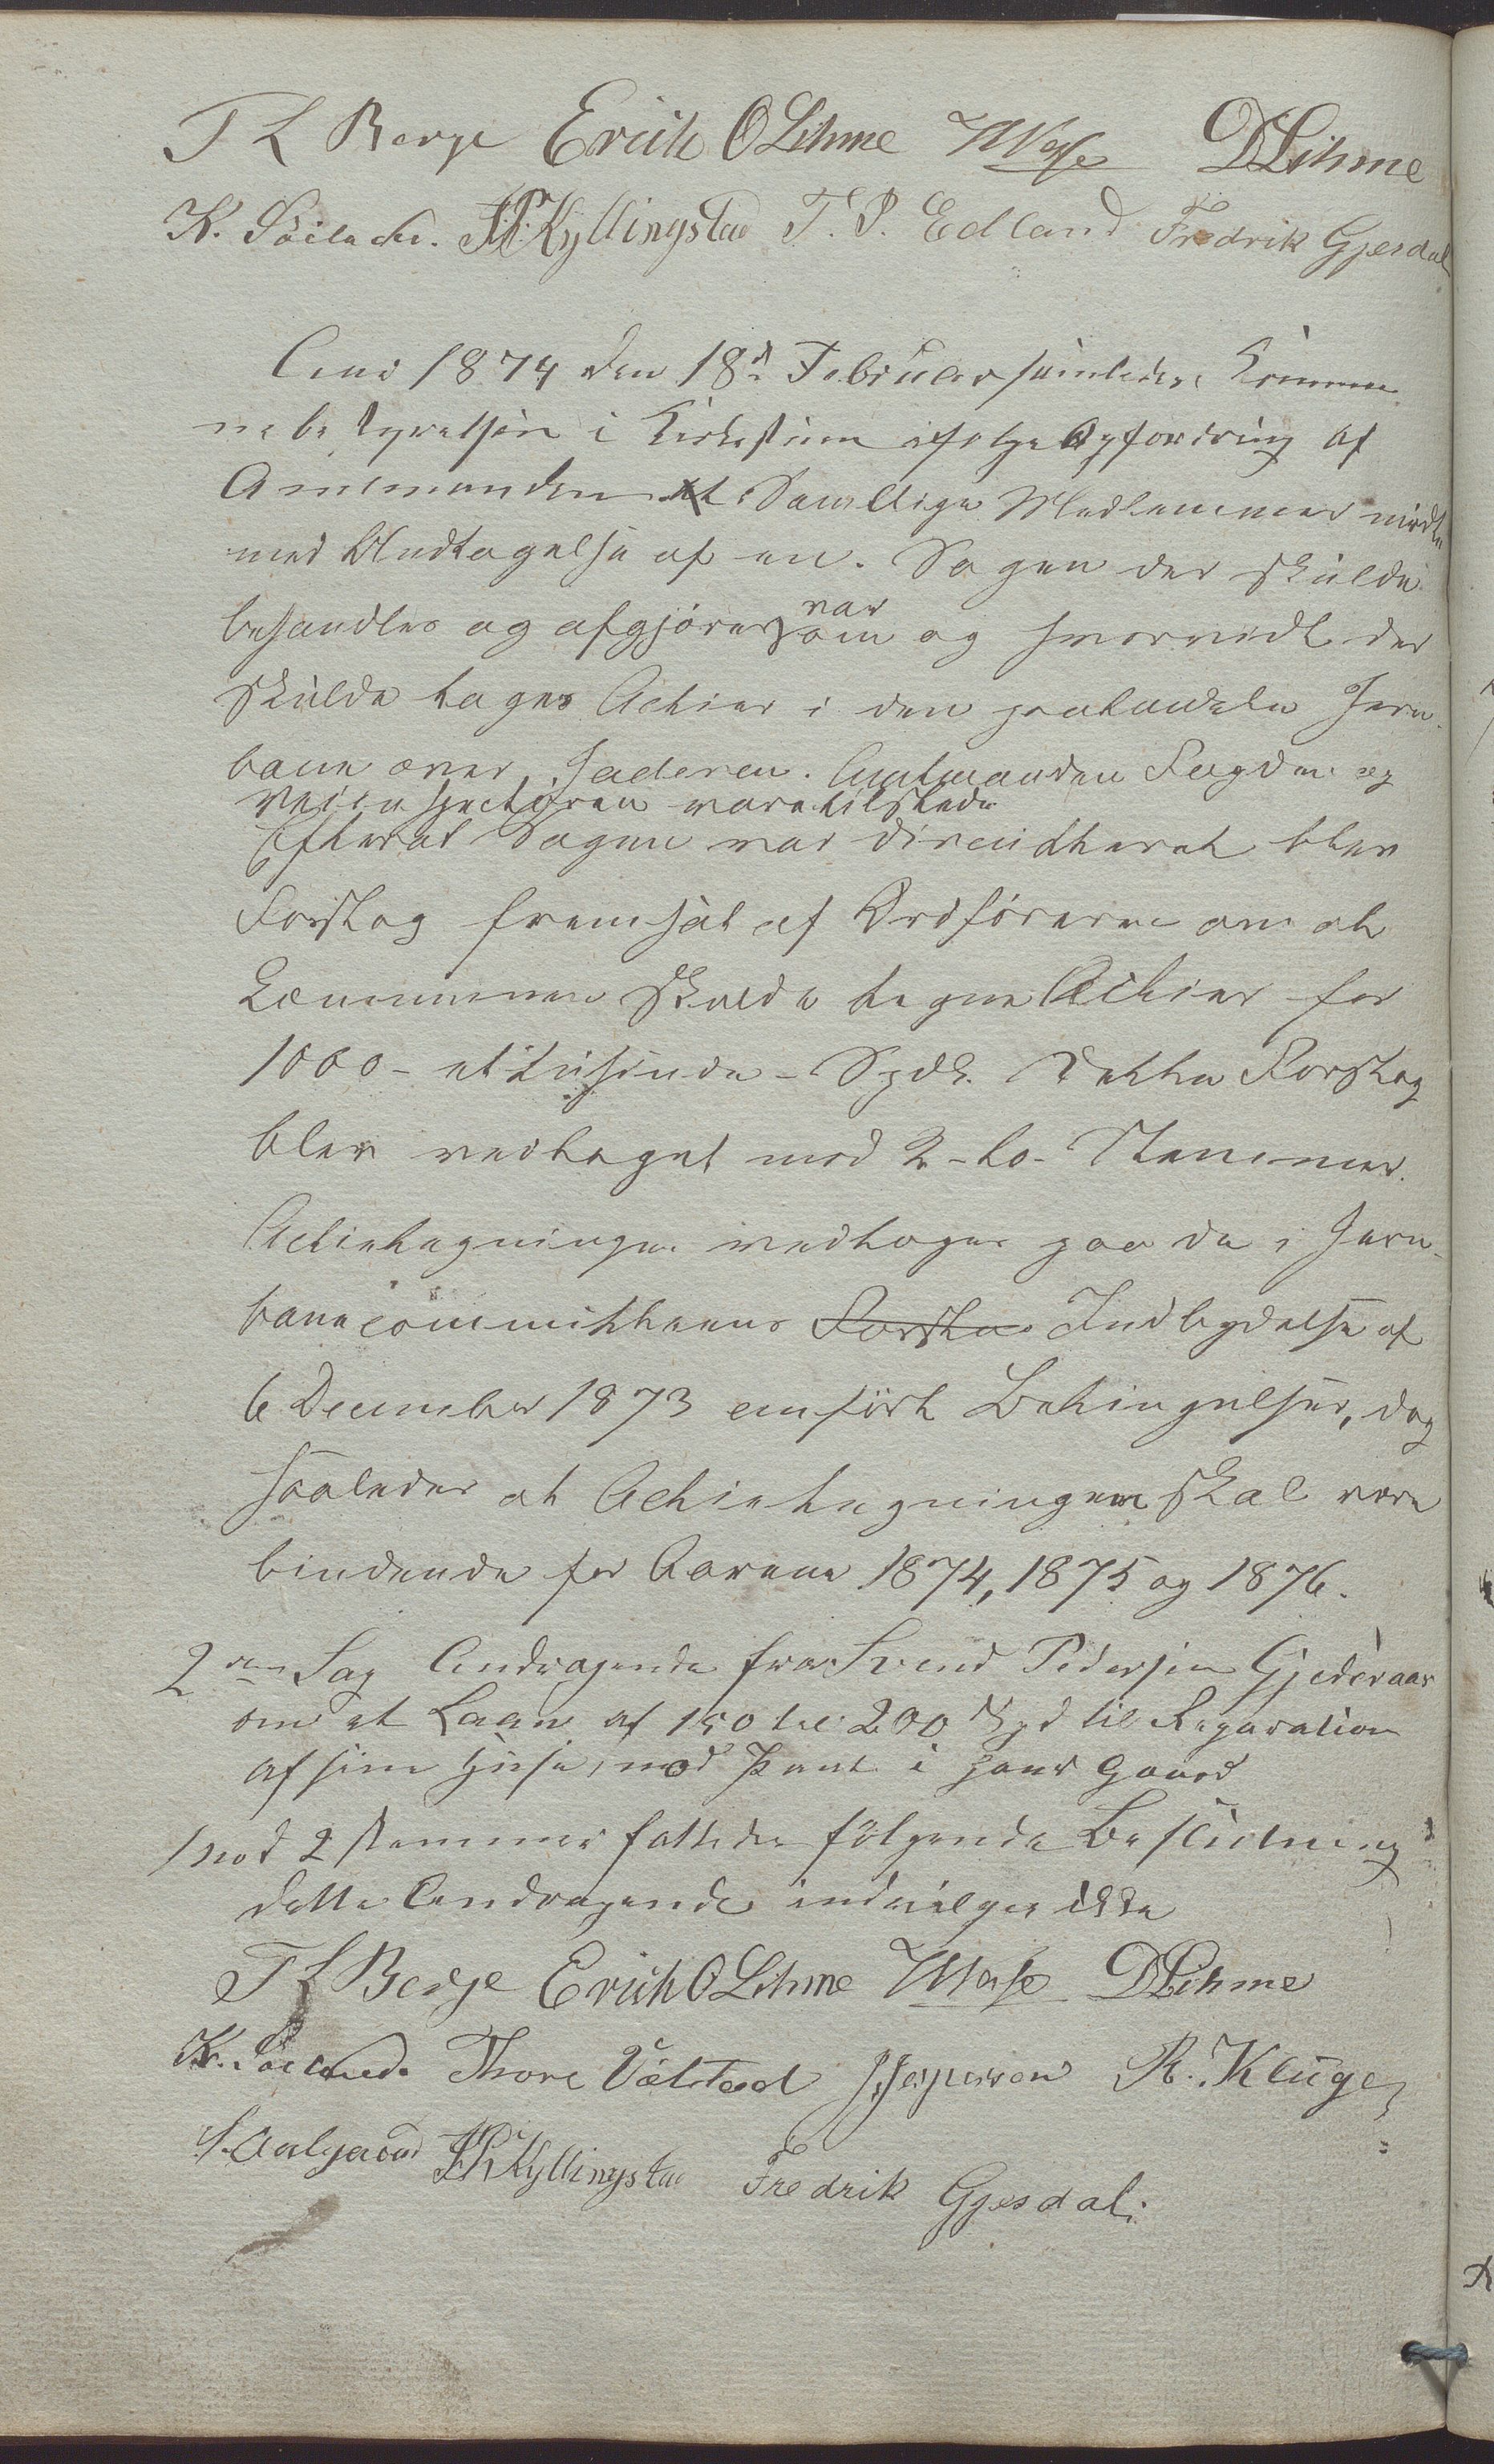 T L Berge Erich O Lihme DLihme
K. JPKyllingstad T. P. Edland Fredrik Gjesdal
1874 den 18d Februar samledes Kommu
nebestyrelsen i ifølge Opfordring af
Amtmanden Samtlige Medlemmer mødte
med Undtagelse af en. Sagen der skulde
var
behandles og afgjøres om og hvorvidt der
skulde tages Actier i den paatænkte Jern-
bane over Jæderen. Amtmanden Fogden og
Veiinspectøren vare tilstede
Efterat Sagen var blev
Forslag fremsat af Ordføreren om at
Communen skulde tegne Actier for
1000 - et tusinde - Spdl. Dette Forslag
blev vedtaget mod 2 - to - Stemmer.
Actietegningen vedtages paa de i Jern-
banecommitteens Forsla Indbydelse af
6 December 1873 anførte Betingelser, dog
saaledes at Actietegningen skal være
bindende for Aarene 1874, 1875 og 1876.
2den Sag Andragende fra Svend Pedersen Gjederaas
om et Laan af 150 til 200 Spd til Reparation
af sine Huse, mod Pant i hans Gaard
mod 2 stemmer fattedes følgende Beslutning
dette Andragende indvilges ikke
T L Berge Erich O Lihme DLihme
K. Thore Ålstad J Jespersen R. Kluge
S. Aalgaard JPKyllingstad Fredrik Gjesdal.